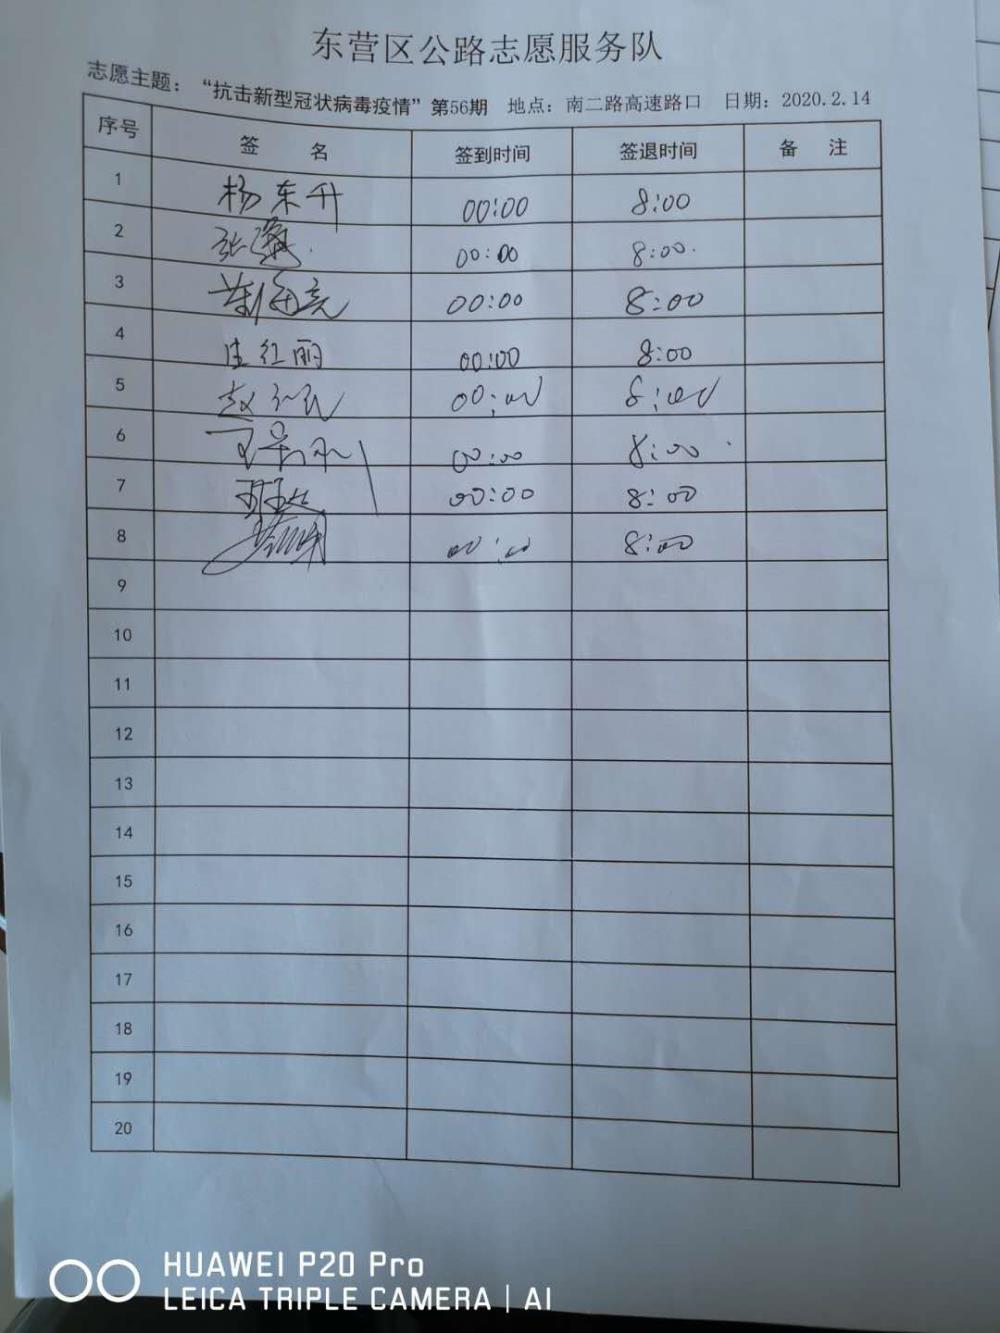 东营区公路志愿服务队
志愿主题：“抗击新型冠状病毒疫情”第56期 地点：南二路高速路口 日期：2020.2.14
序号 签 名 签到时间 签退时间 备 注
1 杨东升 00:00 8:00
2 张 00:00 8:00
3 00:00 8:00
4 庄红丽 00:00 8:00
5 赵 民 00:00 8:00
6 00:00 8:00
7 00:00 8:00
8 00:00 8:00
9
10
11
12
13
14
15
16
17
18
19
20
HUAWEI P20 Pro
LEICA TRIPLE CAMERA | AI